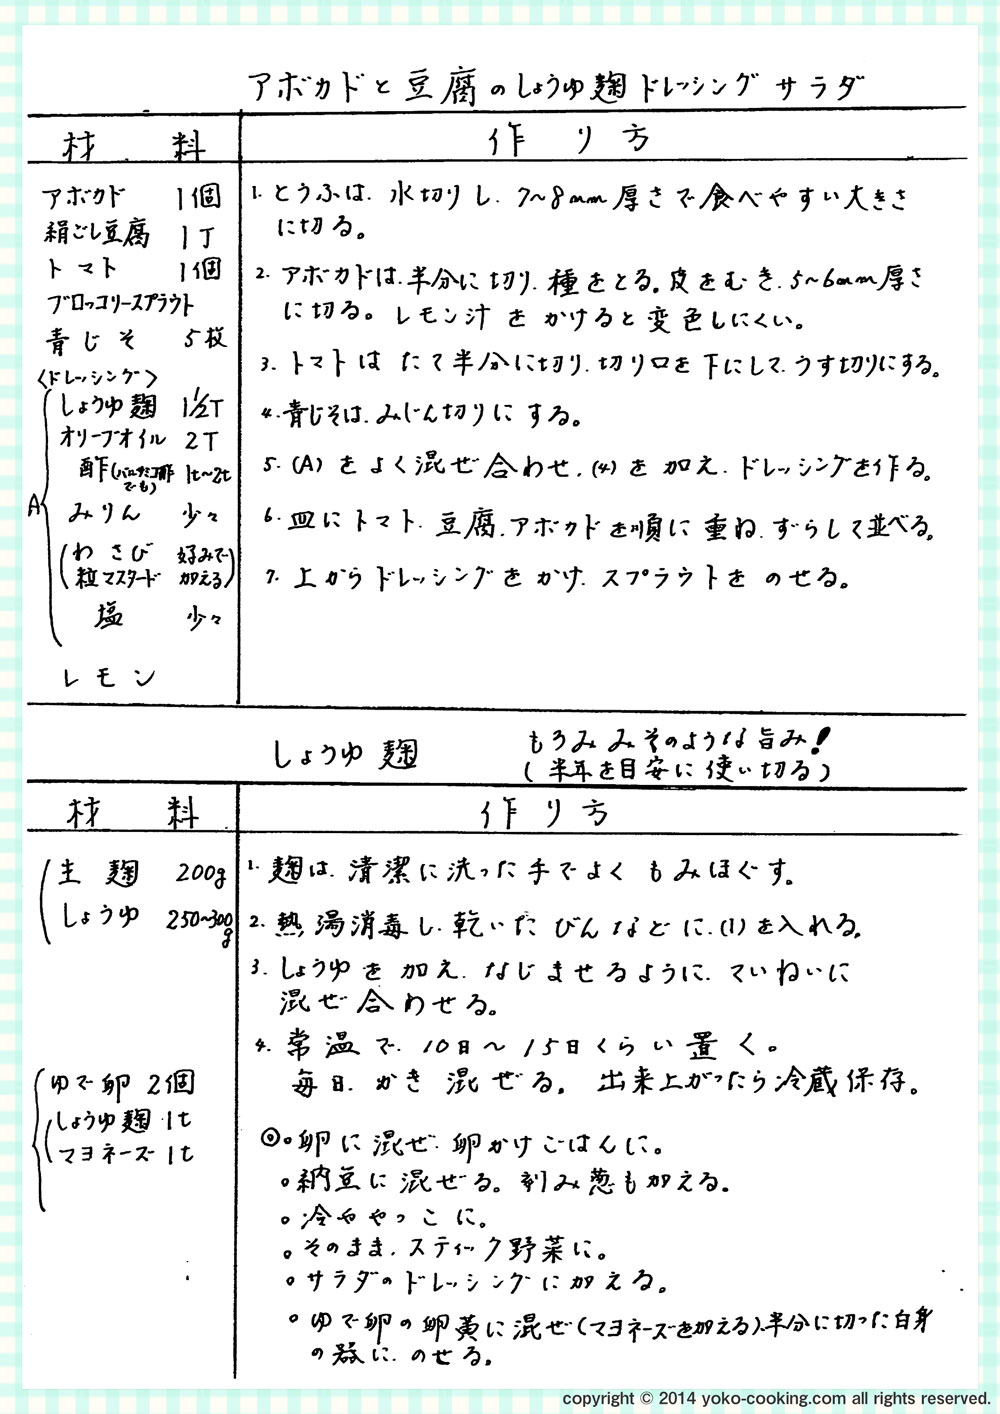 アボカドと豆腐のしょうゆ麹ドレッシングサラダ
材料
作り方
アボカド 1個
絹ごし豆腐 1丁
トマト 1個
ブロッコリースプラウト
青じそ 5枚
〈ドレッシング〉
しょうゆ麹 1½T
オリーブオイル 2T
酢(バルサミコ酢でも) 1t〜2t
A
みりん 少々
(わさび 好みで
粒マスタード 加える)
塩 少々
レモン
1. とうふは、水切りし、7〜8mm厚さで食べやすい大きさ
に切る。
2. アボカドは、半分に切り、種をとる。皮をむき、5〜6mm厚さ
に切る。レモン汁をかけると変色しにくい。
3. トマトはたて半分に切り、切り口を下にして、うす切りにする。
4. 青じそは、みじん切りにする。
5. (A)をよく混ぜ合わせ、(4)を加え、ドレッシングを作る。
6. 皿にトマト、豆腐、アボカドを順に重ね、ずらして並べる。
7. 上からドレッシングをかけ、スプラウトをのせる。
しょうゆ麹
もろみみそのような旨み!
(半年を目安に使い切る)
材料
作り方
生麹 200g
しょうゆ 250〜300g
1. 麹は、清潔に洗った手でよくもみほぐす。
2. 熱湯消毒し、乾いたびんなどに、(1)を入れる。
3. しょうゆを加え、なじませるように、ていねいに
混ぜ合わせる。
4. 常温で、10日〜15日くらい置く。
毎日、かき混ぜる。出来上がったら冷蔵保存。
ゆで卵 2個
しょうゆ麹 1t
マヨネーズ 1t
◎。卵に混ぜ、卵かけごはんに。
。納豆に混ぜる。刻み葱も加える。
。冷ややっこに。
。そのまま、スティック野菜に。
。サラダのドレッシングに加える。
。ゆで卵の卵黄に混ぜ(マヨネーズを加える)、半分に切った白身
の器に、のせる。
copyright © 2014 yoko-cooking.com all rights reserved.